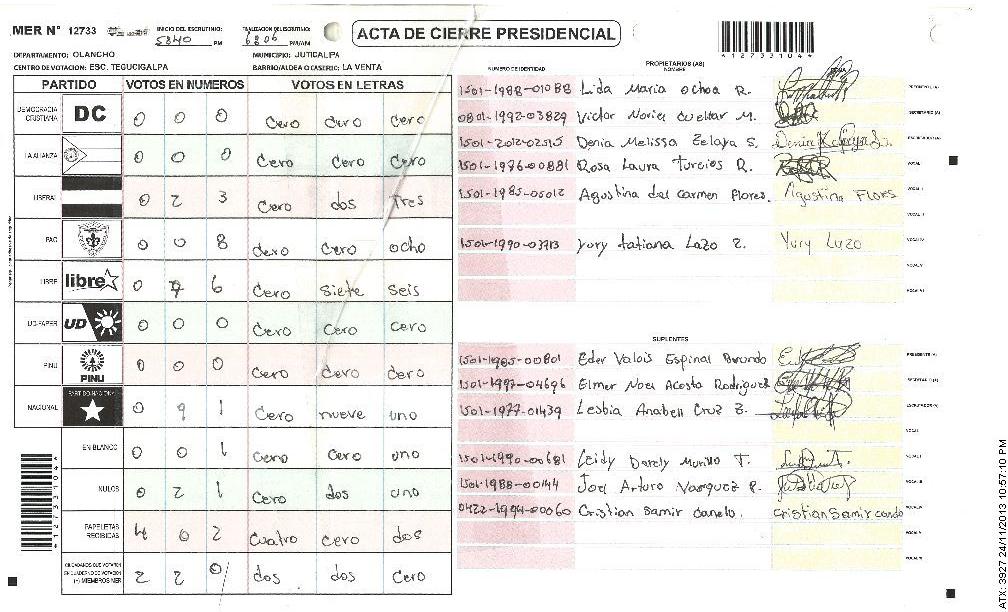 MER N° 12733
INICIO DEL ESCRUTINIO:
5840 PM
FINALIZACION DEL ESCRUTINIO:
6806 PM/AM
ACTA DE CIERRE PRESIDENCIAL
*12733104*
DEPARTAMENTO: OLANCHO
MUNICIPIO: JUTICALPA
CENTRO DE VOTACION: ESC. TEGUCIGALPA
BARRIO/ALDEA O CASERIO: LA VENTA
PARTIDO VOTOS EN NUMEROS VOTOS EN LETRAS
DEMOCRACIA CRISTIANA DC 0 0 0 Cero Cero Cero
LA ALIANZA 0 0 0 Cero Cero Cero
LIBERAL 0 2 3 Cero dos Tres
PAC 0 0 8 Cero Cero ocho
LIBRE libre 0 7 6 Cero Siete Seis
UD-FAPER UD 0 0 0 Cero Cero Cero
PINU PINU 0 0 0 Cero Cero Cero
NACIONAL PARTIDO NACIONAL 0 9 1 Cero nueve uno
EN BLANCO 0 0 1 Cero Cero uno
NULOS 0 2 1 Cero dos uno
PAPELETAS RECIBIDAS 4 0 2 Cuatro cero dos
CIUDADANOS QUE VOTARON EN CUADERNO DE VOTACION (+) MIEMBROS MER 2 2 0 dos dos Cero
*12733104*
NUMERO DE IDENTIDAD PROPIETARIOS (AS) NOMBRE
1501-1988-01088 Lida Maria Ochoa R. PRESIDENTE (A)
0801-1992-03829 Victor Noriel Cuellar M. SECRETARIO (A)
1501-2012-02515 Denia Melissa Zelaya S. ESCRUTADOR (A)
1501-1976-00881 Rosa Laura Turcios R. VOCAL I
1501-1985-05012 Agustina del Carmen Flores. Agustina FLORES VOCAL II
VOCAL III
1501-1990-03713 Yury tatiana Lazo Z. Yury Lazo VOCAL IV
VOCAL V
VOCAL VI
SUPLENTES
1501-1985-00801 Eder Valois Espinal PRESIDENTE (A)
1501-1997-04696 Elmer Noel Acosta Rodriguez SECRETARIO (A)
1501-1977-01439 Lesbia Anabell Cruz Z. ESCRUTADOR (A)
VOCAL I
1501-1990-00681 Leidy Darely Murillo T. VOCAL II
1501-1988-00144 Joel Arturo Vasquez P. VOCAL III
0422-1994-00060 Cristian Samir Canelo. Cristian Samir Canelo VOCAL IV
VOCAL V
VOCAL VI
ATX: 3927 24/11/2013 10:57:10 PM